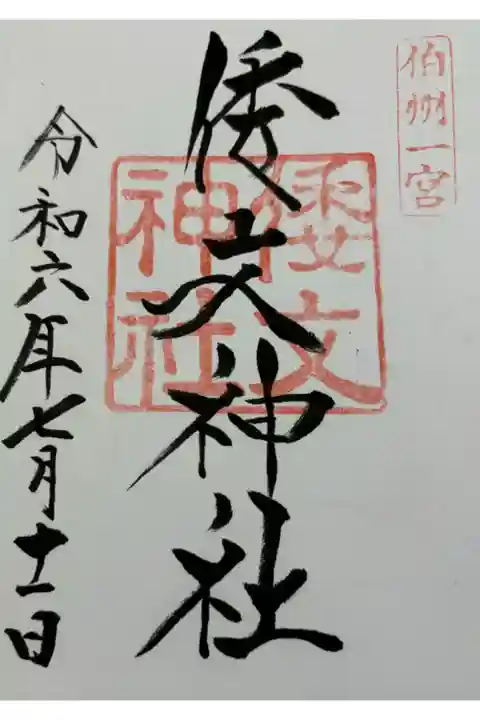 伯州一宮
倭文神社
倭文神社
令和六年七月十一日